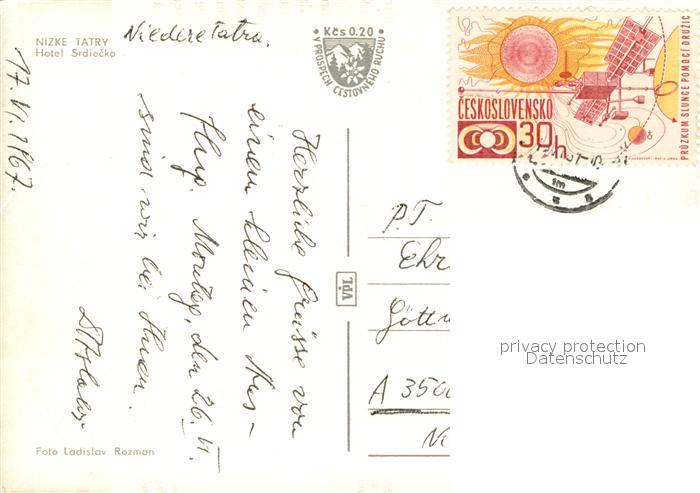 NÍZKE TATRY
Hotel Srdiečko
Niedere Tatra.
17. VI. 1967.
Kčs 0.20
V PROSPECH CESTOVNÉHO RUCHU
ČESKOSLOVENSKO
30h
PRŮZKUM SLUNCE POMOCÍ DRUŽIC
Herzliche Grüsse von
einem kleinen Aus-
flug. Montag, den 26. VI.
sind wir bei Ihnen.
VPL
P.T.
Ehr
Gött
A 350
Foto Ladislav Rozman
privacy protection
Datenschutz